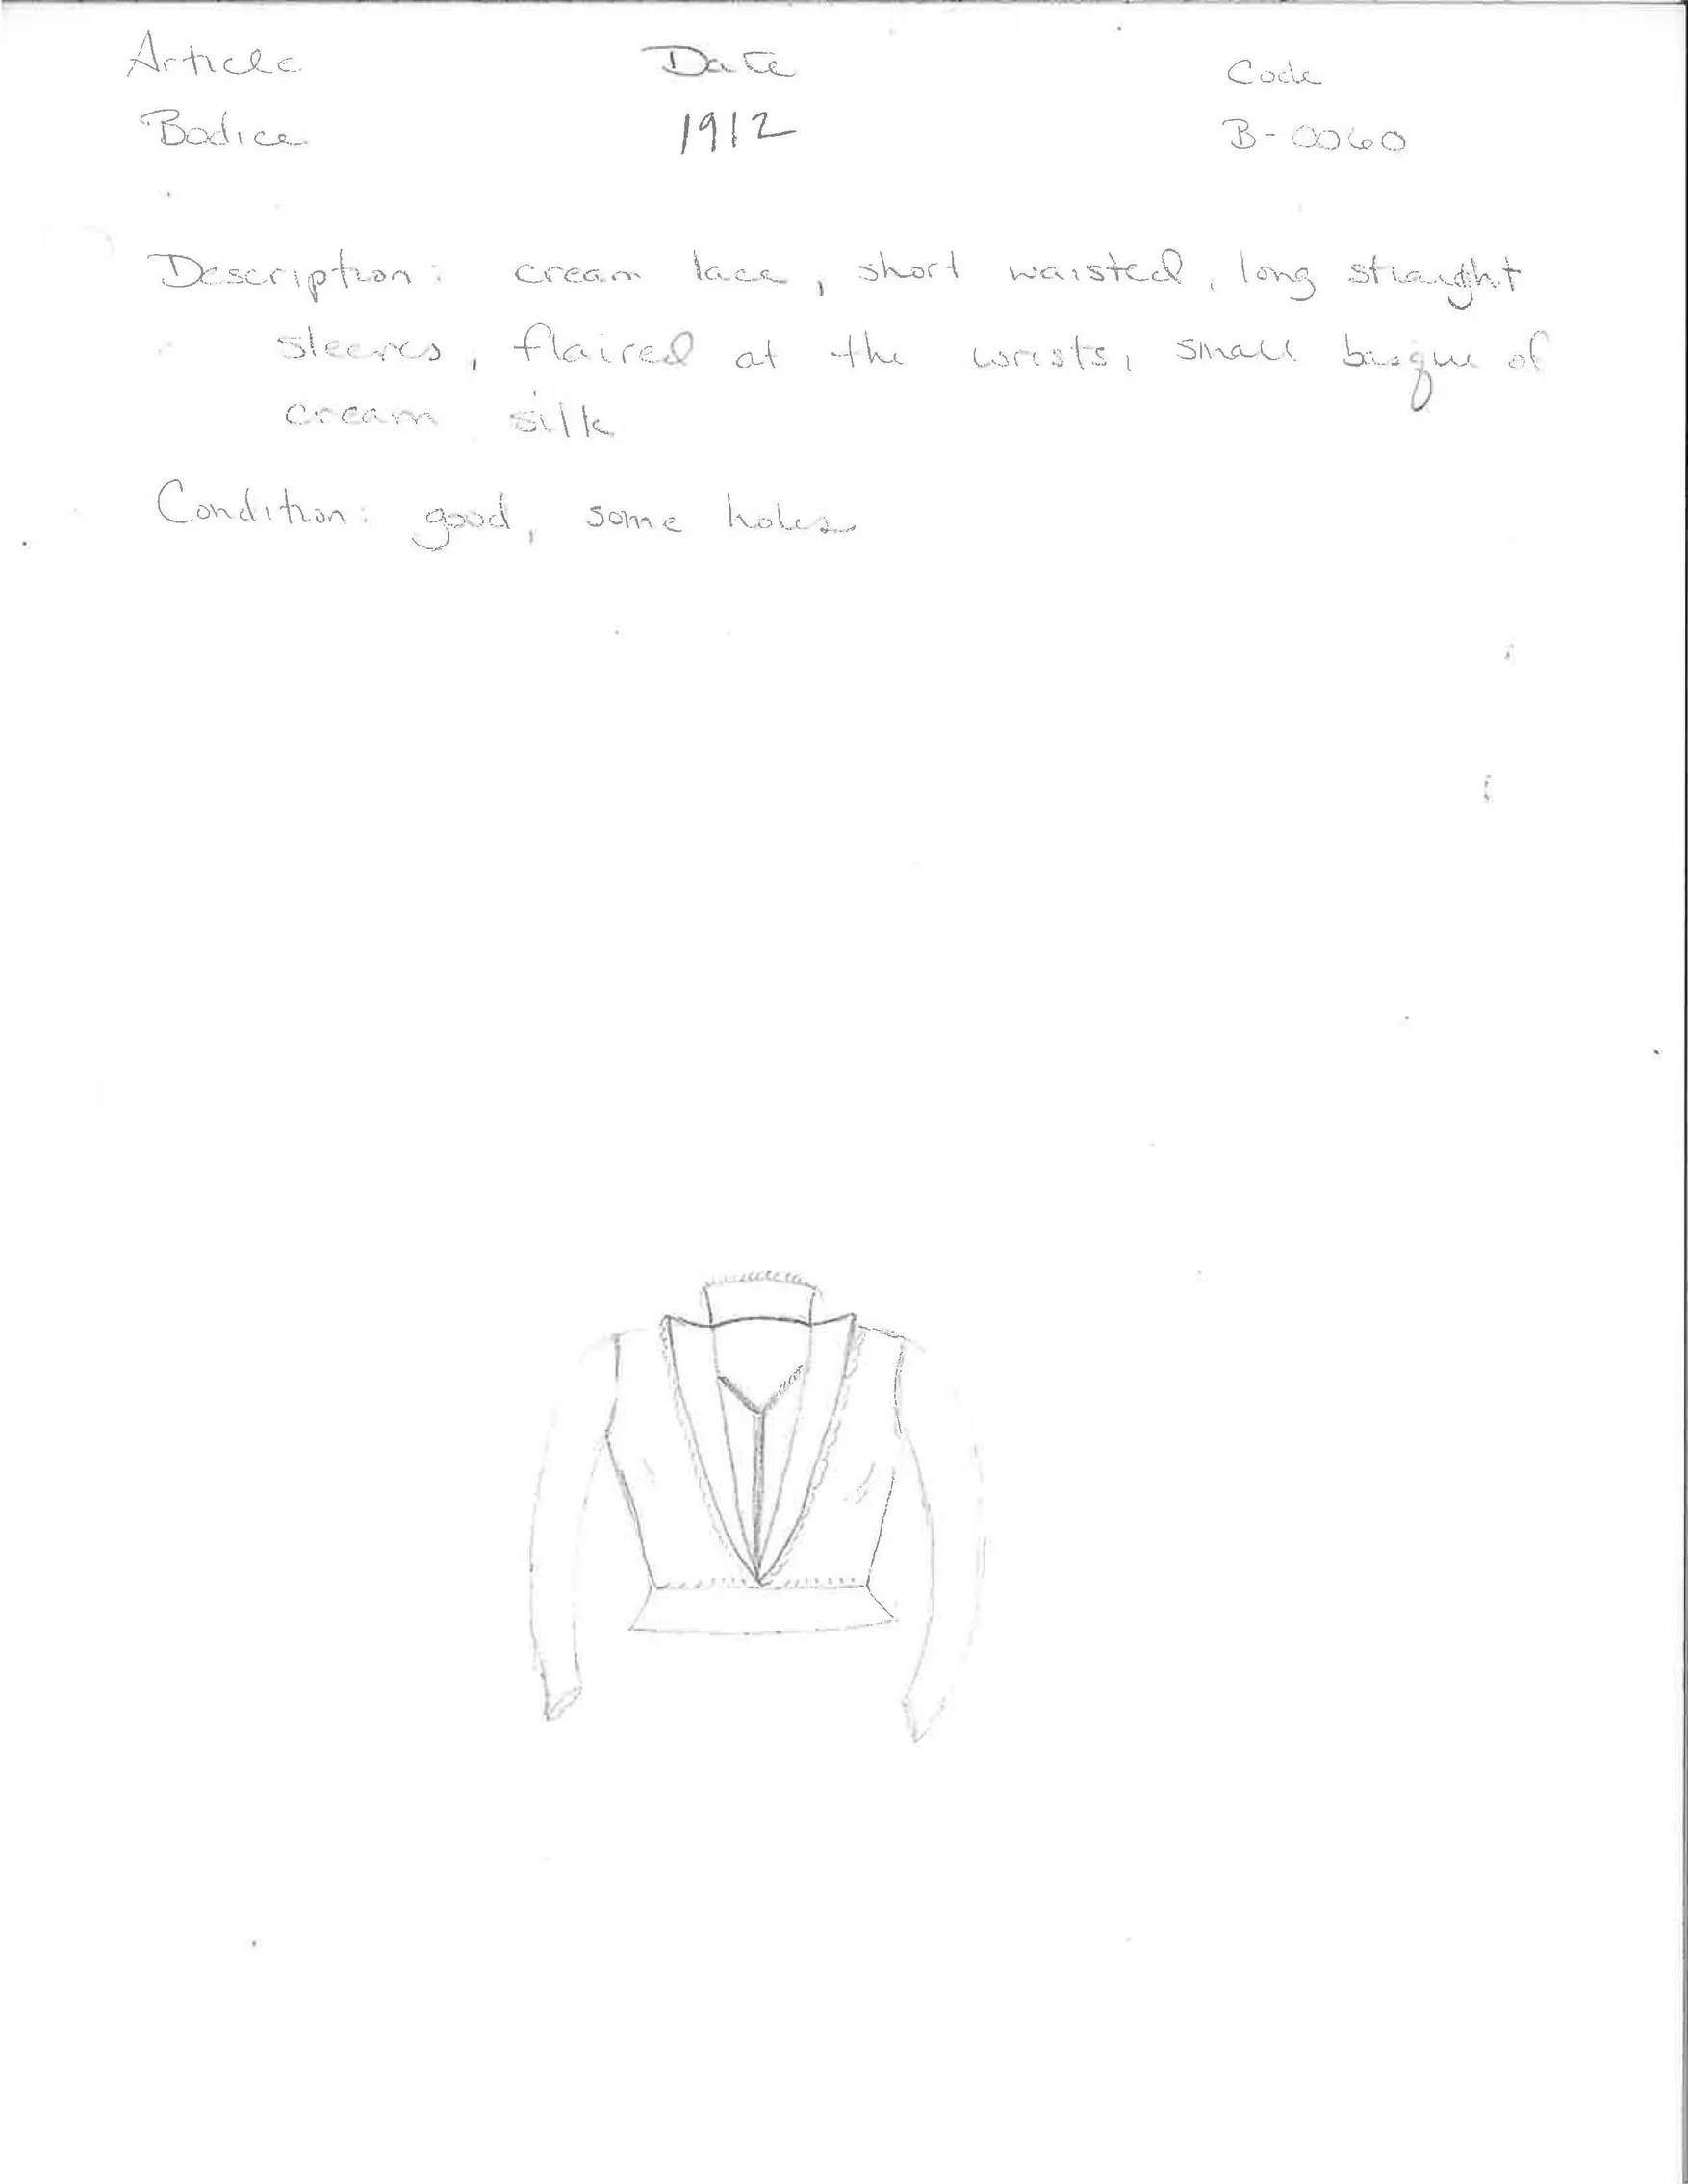 Article Date Code
Bodice 1912 B-0060
Description: cream lace, short waisted, long straight
sleeves, flaired at the wrists, small basque of
cream silk
Condition: good, some holes